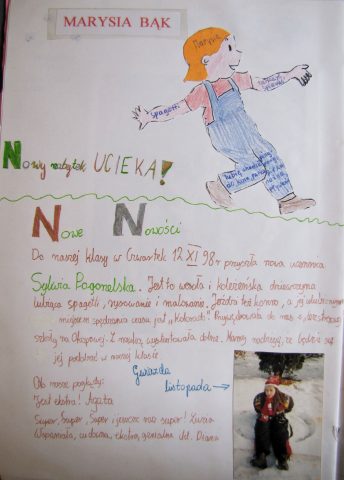 MARYSIA BĄK
Marysia
Spagetti
Nowy nabytek UCIEKA!
Nowe Nowości
Do naszej klasy w Czwartek 12 XI 98r przyszła nowa uczennica
Sylwia Pogonelska. Jest to wesoła i koleżeńska dziewczyna
lubiąca spagetti, rysowanie i malowanie. Jeździ też konno, a jej ulubionym
miejscem spędzania czasu jest „Kolorado”. Przywędrowała do nas z
szkoły na Okopowej. Z nauką wystartowała dobrze. Mamy nadzieję, że będzie się
jej podobać w naszej klasie.
Gwiazda
listopada →
Oto nasze poglądy:
Jest ekstra! Agata
Super, Super, Super i jeszcze raz super! Zuzia
Wspaniała, cudowna, ekstra, genialna itd. Diana